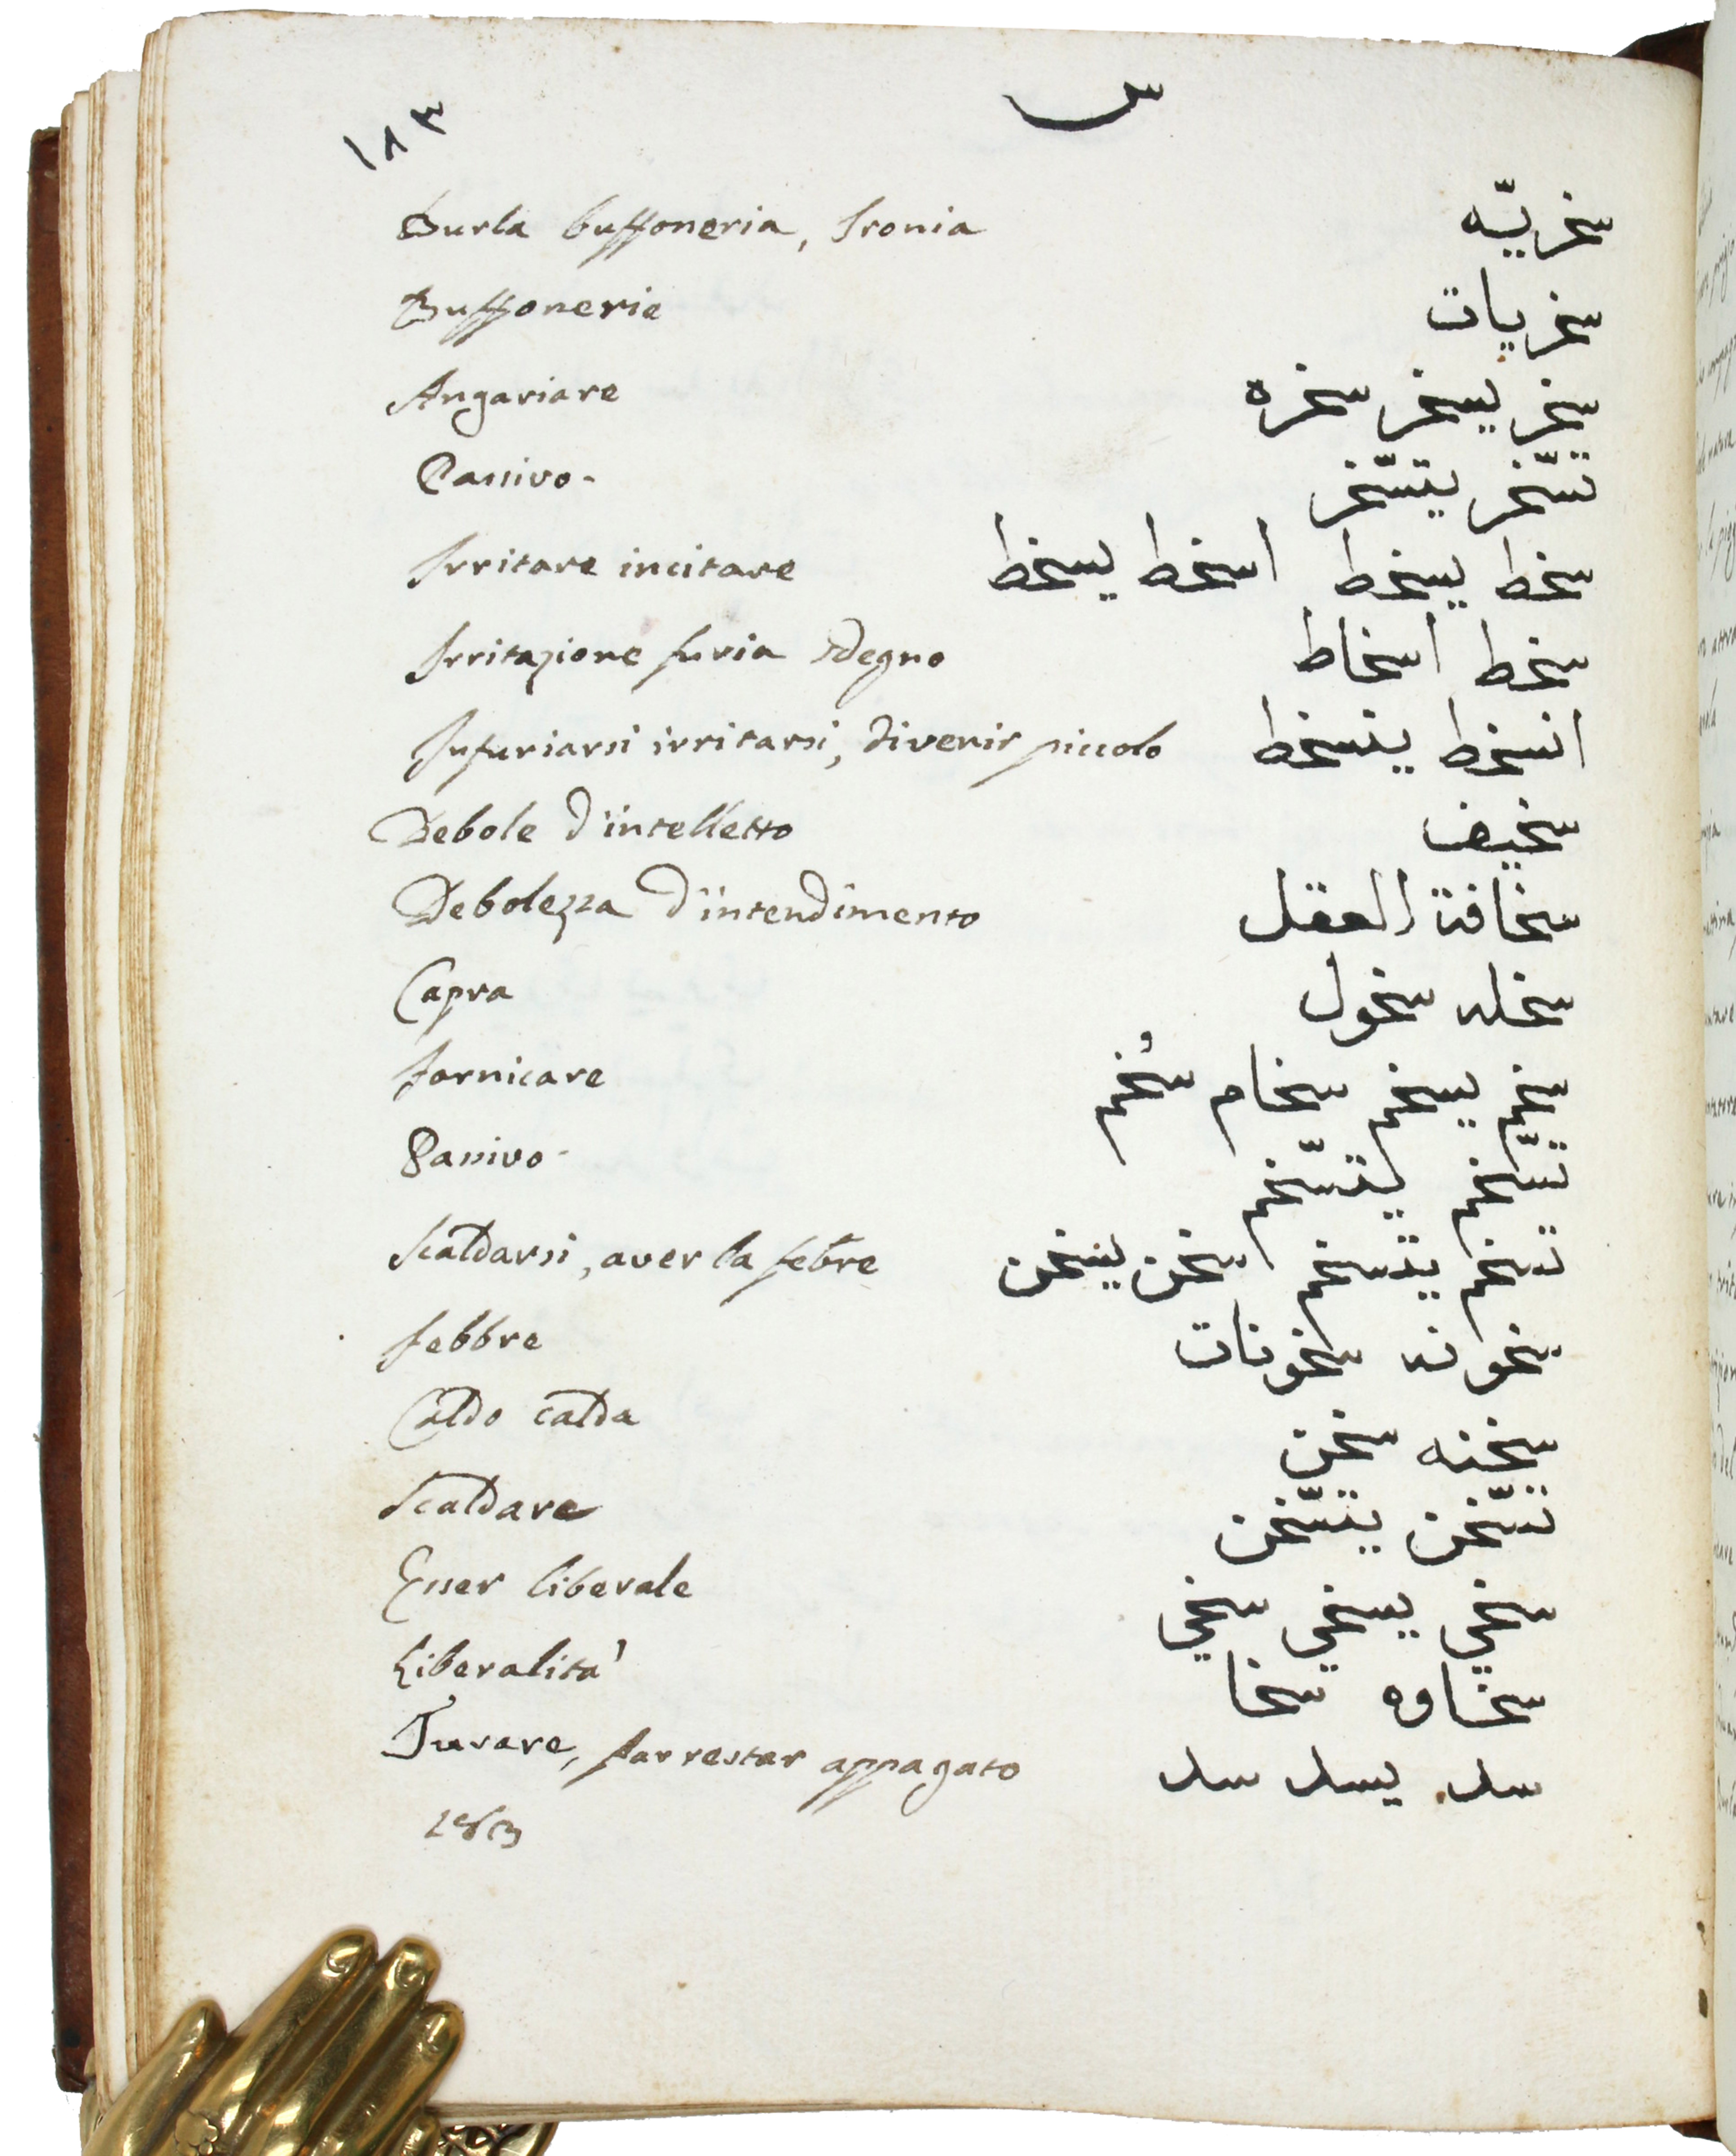 ١٨٣ س
Burla buffoneria, Ironia سخريّه
Buffonerie سخريات
Angariare سخر يسخر سخره
Passivo- تسّخر يتسّخر
Irritare incitare سخط يسخط اسخط يسخط
Irritazione furia sdegno سخط اسخاط
Infuriarsi irritarsi, divenir piccolo انسخط ينسخط
Debole d'intelletto سخيف
Debolezza d'intendimento سخافة العقل
Capra سخله سخول
fornicare سخم يسخم سخام سُخم
Passivo- تسّخم يتسّخم
Scaldarsi, aver la febre تسخم يتسخم سخن يسخن
febbre سخونه سخونات
Caldo calda سخنه سخن
Scaldare تسّخن يتسّخن
Esser liberale سخي يسخي سخي
Liberalità سخاوه سخا
Turare, far restar appagato سد يسد سد
183